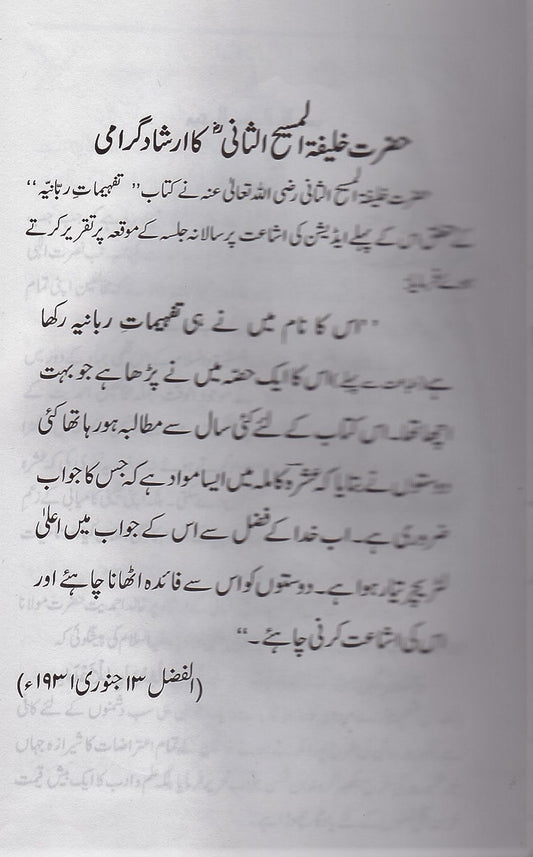 حضرت خلیفۃ المسیح الثانیؓ کا ارشاد گرامی
حضرت خلیفۃ المسیح الثانی رضی اللہ تعالیٰ عنہ نے کتاب ’’تفہیماتِ ربانیّہ‘‘
کے متعلق اس کے پہلے ایڈیشن کی اشاعت پر سالانہ جلسہ کے موقعہ پر تقریر کرتے
ہوئے فرمایا:
’’اس کا نام میں نے ہی تفہیماتِ ربانیہ رکھا
ہے (طباعت سے پہلے) اس کا ایک حصّہ میں نے پڑھا ہے جو بہت
اچھا تھا۔ اس کتاب کے لئے کئی سال سے مطالبہ ہو رہا تھا کئی
دوستوں نے بتایا کہ عشرہ کاملہ میں ایسا مواد ہے کہ جس کا جواب
ضروری ہے۔ اب خدا کے فضل سے اس کے جواب میں اعلیٰ
لٹریچر تیار ہوا ہے۔ دوستوں کو اس سے فائدہ اٹھانا چاہئے اور
اس کی اشاعت کرنی چاہئے۔‘‘
(الفضل ۱۳ جنوری ۱۹۳۱ء)